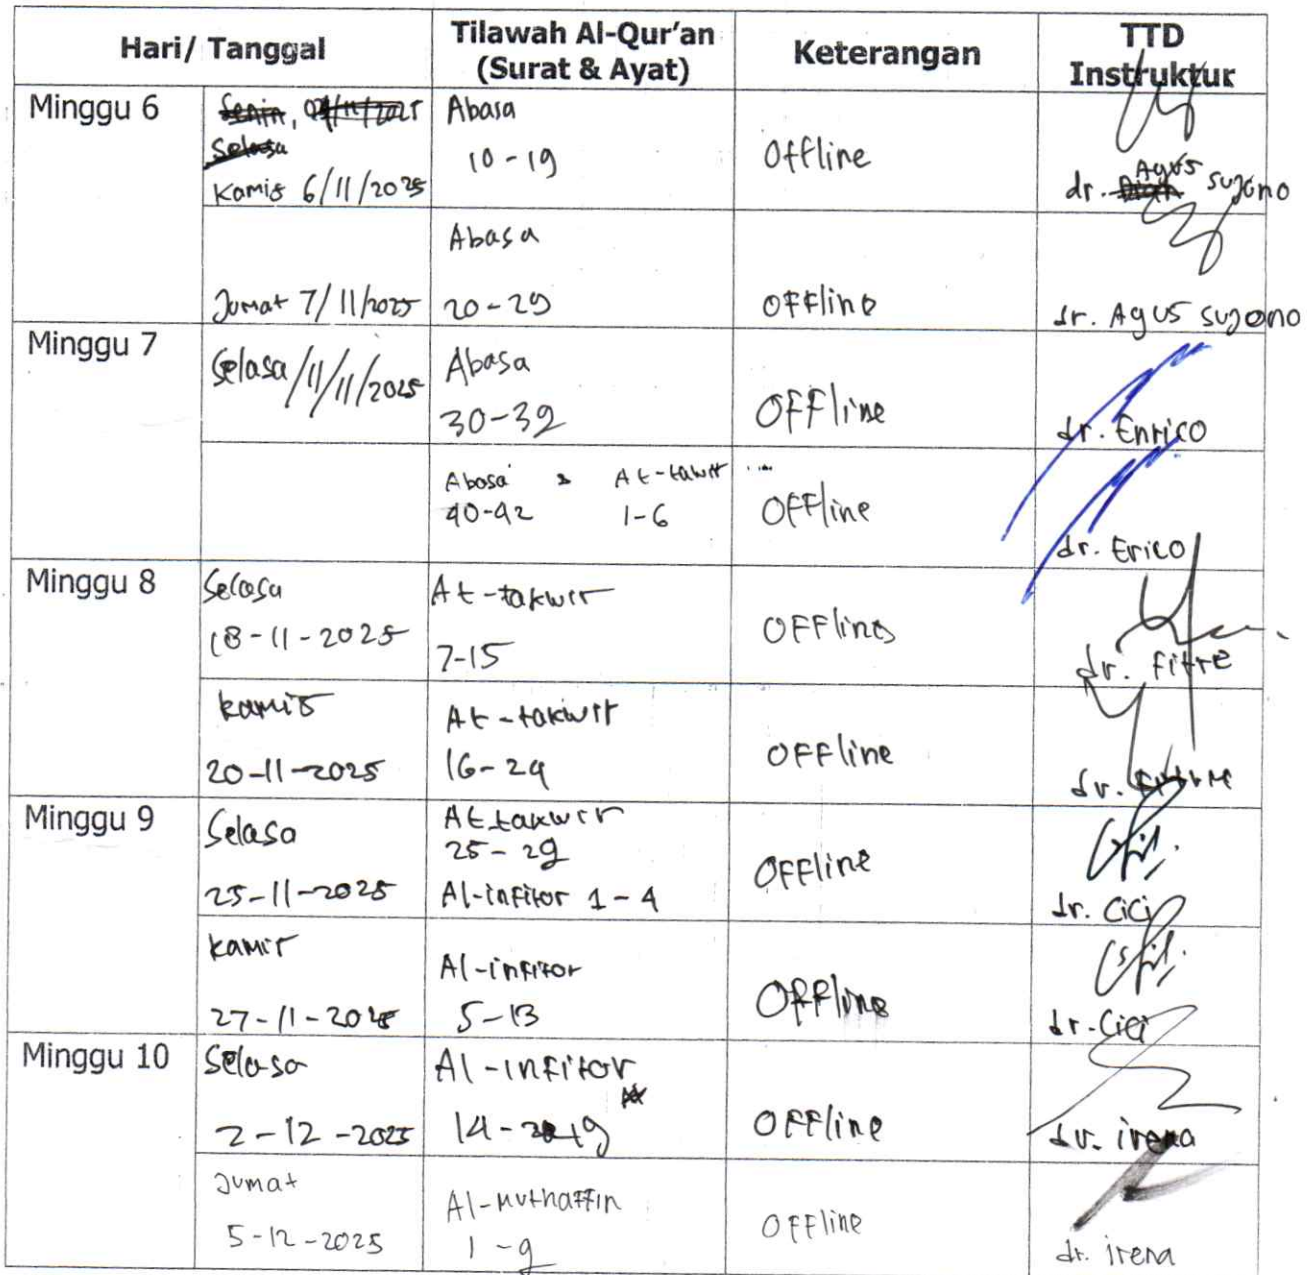 Hari/ Tanggal
Tilawah Al-Qur'an
(Surat & Ayat)
Keterangan
TTD
Instruktur
Minggu 6
Senin,
Selasa
Kamis 6/11/2025
Abasa
10-19
Offline
dr. Agus sujono
Jumat 7/11/2025
Abasa
20-29
OFFline
dr. Agus sujono
Minggu 7
Selasa/11/11/2025
Abasa
30-39
OFFline
dr. Enrico
Abasa & At-takwir
40-42 1-6
OFFline
dr. Erico
Minggu 8
Selasa
18-11-2025
At-takwir
7-15
OFFline
dr. fitre
kamis
20-11-2025
At-takwir
16-24
OFFline
dr.
Minggu 9
Selasa
25-11-2025
At takwir
25-29
Al-infitor 1-4
OFFline
dr. Cici
kamis
27-11-2025
Al-infitor
5-13
OFFline
dr. Cici
Minggu 10
Selasa
2-12-2025
Al-infitor
14-19
OFFline
dr. irena
Jumat
5-12-2025
Al-Muthaffin
1-9
OFFline
dr. irena